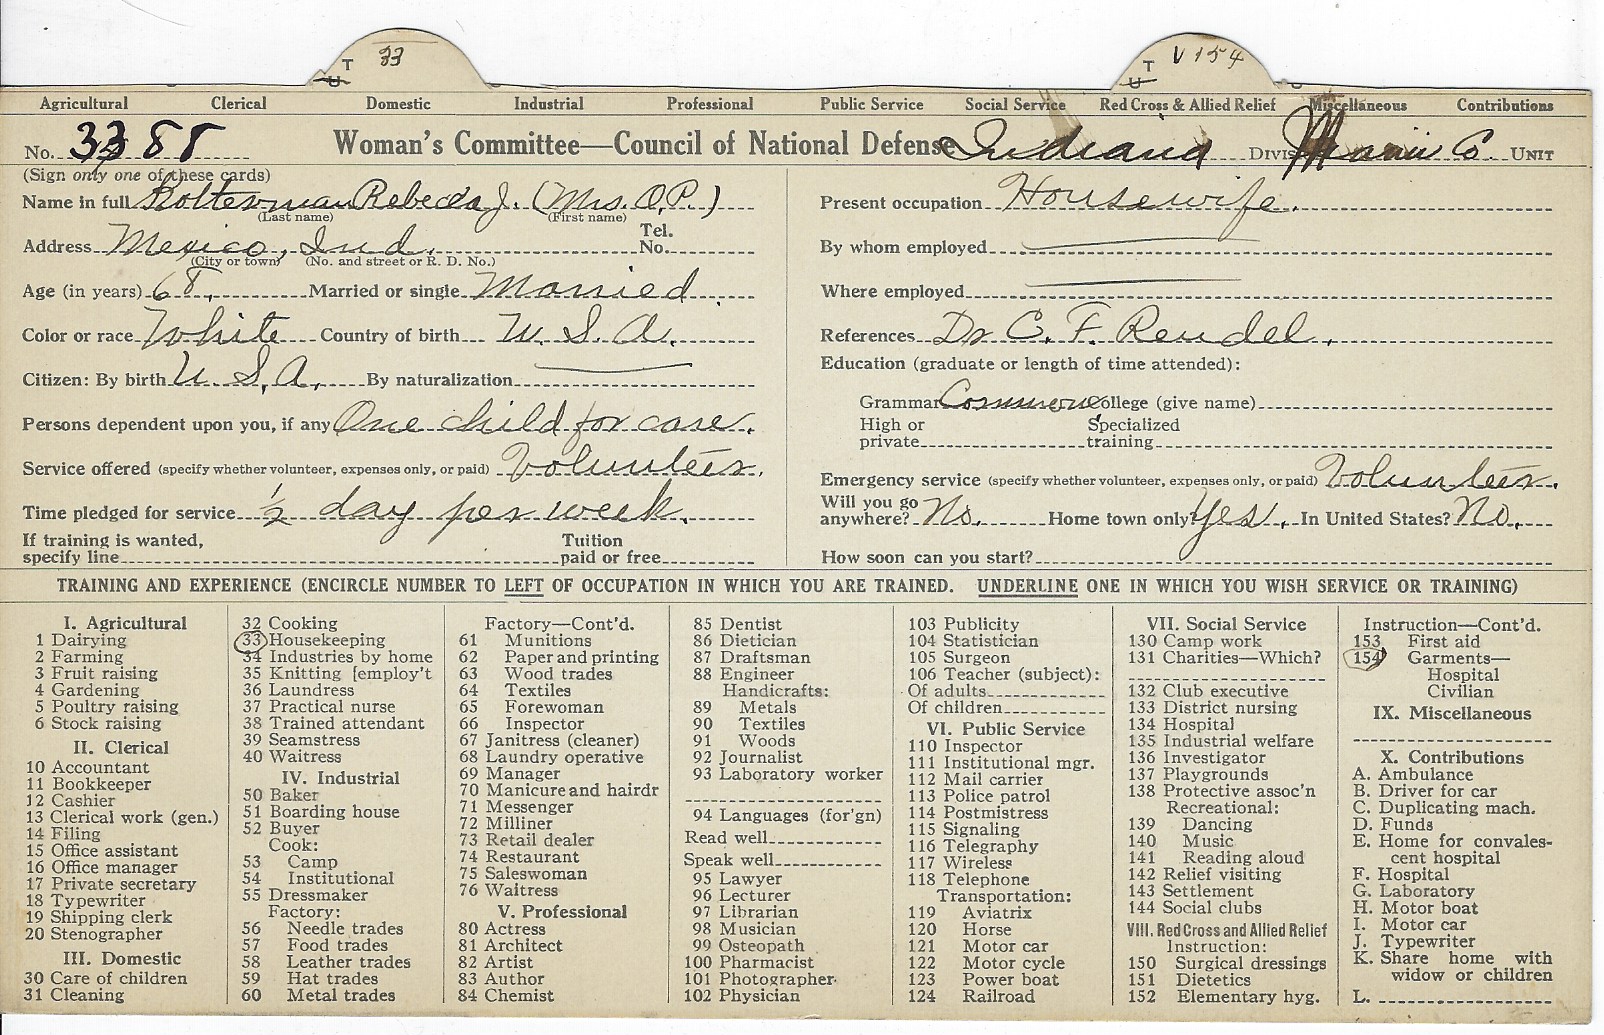 T 33 T V 154
U U
Agricultural Clerical Domestic Industrial Professional Public Service Social Service Red Cross & Allied Relief Miscellaneous Contributions
No. 3388 Woman's Committee—Council of National Defense Indiana Divis Miami Co. Unit
(Sign only one of these cards)
Name in full Bolterman Rebecca J. (Mrs. O.P.)
(Last name) (First name)
Address Mexico, Ind. Tel. No.
(City or town) (No. and street or R. D. No.)
Age (in years) 68. Married or single Married.
Color or race White Country of birth U. S. A.
Citizen: By birth U. S. A. By naturalization
Persons dependent upon you, if any One child for care.
Service offered (specify whether volunteer, expenses only, or paid) Volunteer.
Time pledged for service 1/2 day per week.
If training is wanted, specify line Tuition paid or free
Present occupation Housewife.
By whom employed
Where employed
References Dr C. F. Rendel.
Education (graduate or length of time attended):
Grammar Common College (give name)
High or private Specialized training
Emergency service (specify whether volunteer, expenses only, or paid) Volunteer.
Will you go anywhere? No. Home town only? Yes. In United States? No.
How soon can you start?
TRAINING AND EXPERIENCE (ENCIRCLE NUMBER TO LEFT OF OCCUPATION IN WHICH YOU ARE TRAINED. UNDERLINE ONE IN WHICH YOU WISH SERVICE OR TRAINING)
I. Agricultural
1 Dairying
2 Farming
3 Fruit raising
4 Gardening
5 Poultry raising
6 Stock raising
II. Clerical
10 Accountant
11 Bookkeeper
12 Cashier
13 Clerical work (gen.)
14 Filing
15 Office assistant
16 Office manager
17 Private secretary
18 Typewriter
19 Shipping clerk
20 Stenographer
III. Domestic
30 Care of children
31 Cleaning
32 Cooking
33 Housekeeping
34 Industries by home
35 Knitting [employ't
36 Laundress
37 Practical nurse
38 Trained attendant
39 Seamstress
40 Waitress
IV. Industrial
50 Baker
51 Boarding house
52 Buyer
Cook:
53 Camp
54 Institutional
55 Dressmaker
Factory:
56 Needle trades
57 Food trades
58 Leather trades
59 Hat trades
60 Metal trades
Factory—Cont'd.
61 Munitions
62 Paper and printing
63 Wood trades
64 Textiles
65 Forewoman
66 Inspector
67 Janitress (cleaner)
68 Laundry operative
69 Manager
70 Manicure and hairdr
71 Messenger
72 Milliner
73 Retail dealer
74 Restaurant
75 Saleswoman
76 Waitress
V. Professional
80 Actress
81 Architect
82 Artist
83 Author
84 Chemist
85 Dentist
86 Dietician
87 Draftsman
88 Engineer
Handicrafts:
89 Metals
90 Textiles
91 Woods
92 Journalist
93 Laboratory worker
94 Languages (for'gn)
Read well
Speak well
95 Lawyer
96 Lecturer
97 Librarian
98 Musician
99 Osteopath
100 Pharmacist
101 Photographer
102 Physician
103 Publicity
104 Statistician
105 Surgeon
106 Teacher (subject):
Of adults
Of children
VI. Public Service
110 Inspector
111 Institutional mgr.
112 Mail carrier
113 Police patrol
114 Postmistress
115 Signaling
116 Telegraphy
117 Wireless
118 Telephone
Transportation:
119 Aviatrix
120 Horse
121 Motor car
122 Motor cycle
123 Power boat
124 Railroad
VII. Social Service
130 Camp work
131 Charities—Which?
132 Club executive
133 District nursing
134 Hospital
135 Industrial welfare
136 Investigator
137 Playgrounds
138 Protective assoc'n
Recreational:
139 Dancing
140 Music
141 Reading aloud
142 Relief visiting
143 Settlement
144 Social clubs
VIII. Red Cross and Allied Relief
Instruction:
150 Surgical dressings
151 Dietetics
152 Elementary hyg.
Instruction—Cont'd.
153 First aid
154 Garments—
Hospital
Civilian
IX. Miscellaneous
X. Contributions
A. Ambulance
B. Driver for car
C. Duplicating mach.
D. Funds
E. Home for convales-
cent hospital
F. Hospital
G. Laboratory
H. Motor boat
I. Motor car
J. Typewriter
K. Share home with
widow or children
L.